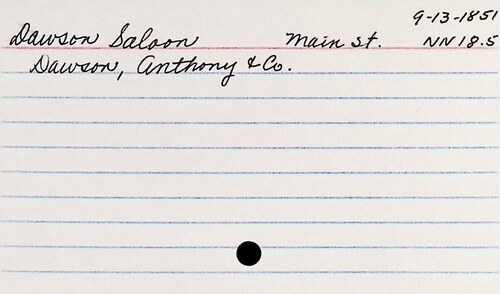 9-13-1851
Dawson Saloon Main St. NN 18.5
Dawson, Anthony & Co.